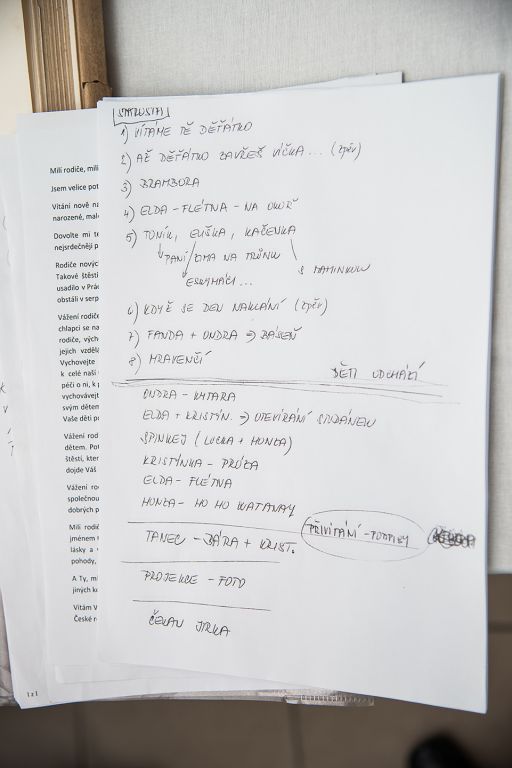 STAROSTA
1) VÍTÁME TĚ DĚŤÁTKO
2) AŽ DĚŤÁTKO ZAVŘEŠ VÍČKA... (zpěv)
3) BRAMBORA
4) ELDA - FLÉTNA - NA OKOŘ
5) TONÍK, ELIŠKA, KAČENKA
PANÍ ZIMA NA TRŮNU
S MAMINKOU
ESKYMÁCI...
6) KDYŽ SE DEN NAKLÁNÍ (zpěv)
7) FANDA + ONDRA => BÁSEŇ
8) MRAVENČÍ
DĚTI ODCHÁZÍ
ONDRA - KYTARA
ELDA + KRISTÝN. => OTEVÍRÁNÍ STUDÁNEK
SPINKEJ (LUCKA + HONZA)
KRISTÝNKA - PRÓZA
ELDA - FLÉTNA
HONZA - HO HO WATANAY
PŘIVÍTÁNÍ - PODPISY
TANEC - BÁRA + KRIST.
PROJEKCE - FOTO
ČEKAN JIRKA
Milí rodiče, milí
Jsem velice pot
Vítání nově na
narozené, mal
Dovolte mi te
nejsrdečněji p
Rodiče nových
Takové štěstí
usadilo v Prác
obstáli v serp
Vážení rodiče
chlapci se na
rodiče, vých
jejich vzdělá
Vychovejte
k celé naší
péči o ni, k
vychovávejt
svým dětem
Vaše děti po
Vážení rod
dětem. Pot
štěstí, kter
dojde Váš
Vážení ro
společnou
dobrých p
Milí rodič
jménem
lásky a
pohody,
A Ty, mi
jiných k
Vítám V
České r
1 z 1